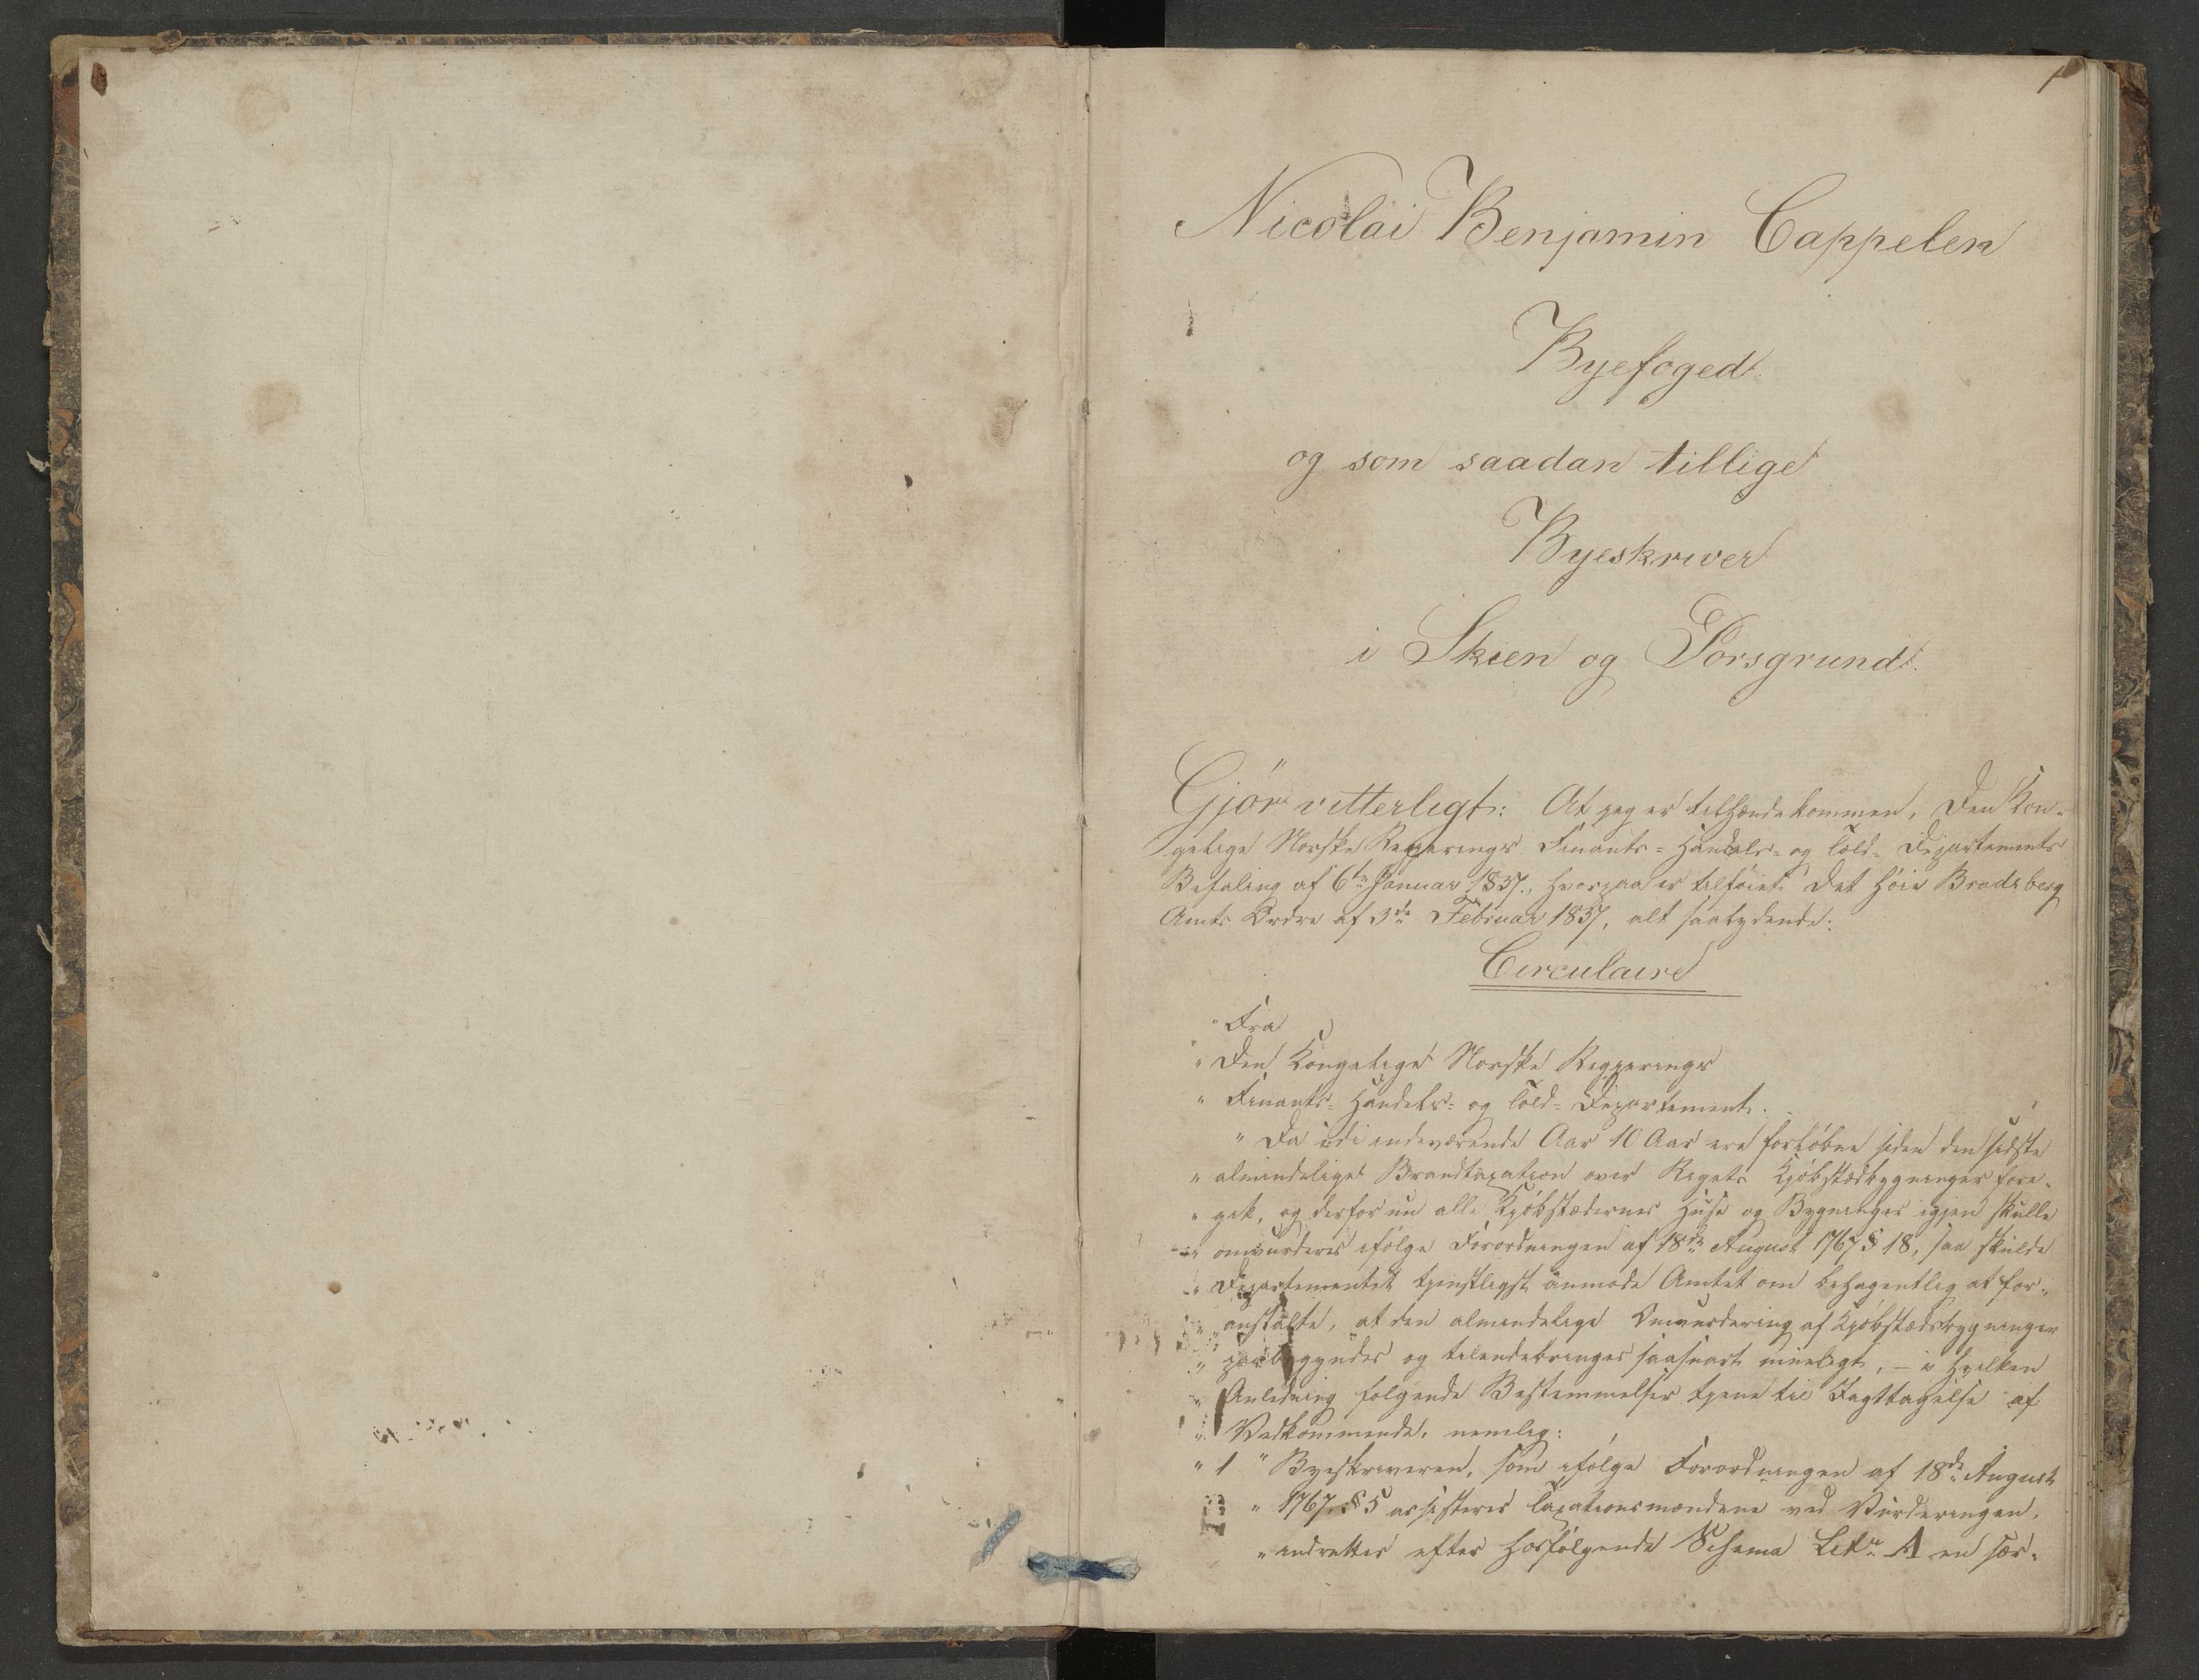 1
Nicolai Benjamin Cappelen
Byefoged
og som saadan tillige
Byeskriver
i Skien og Porsgrund.
Gjör vitterligt: At jeg er tilhændekommen, Den Kon-
gelige Norske Regjerings Finants- Handels- og Told- Departements
Befaling af 6te Januar 1837, hvorpaa er tilföiet Det höie Bradsberg
Amts Ordre af 3de Februar 1837, alt saalydende:
Circulaire
" Fra
" Den Kongelige Norske Regjerings
" Finants- Handels- og Told- Departement.
" Da i det indeværende Aar 10 Aar ere forlöbne siden den sidste
" almindelige Brandtaxation over Rigets Kjöbstædbygninger fore-
" gik, og derfor nu alle Kjöbstædernes Huse og Bygninger igjen skulle
" omvurderes ifölge Forordningen af 18de August 1767 § 18, saa skulde
" Departementet tjenstligst anmode Amtet om behageligt at for-
" anstalte, at den almindelige Omvurdering af Kjöbstædbygninger
" paabegyndes og tilendebringes saasnart mueligt, – i hvilken
" Anledning fölgende Bestemmelser tjene til Iagttagelse af
" Vedkommende, nemlig:
" 1 " Byeskriveren, som ifölge Forordningen af 18de August
" 1767 § 5 assisterer Taxationsmændene ved Vurderingen,
" indretter efter hosfölgende Schema Litr. A en sær-